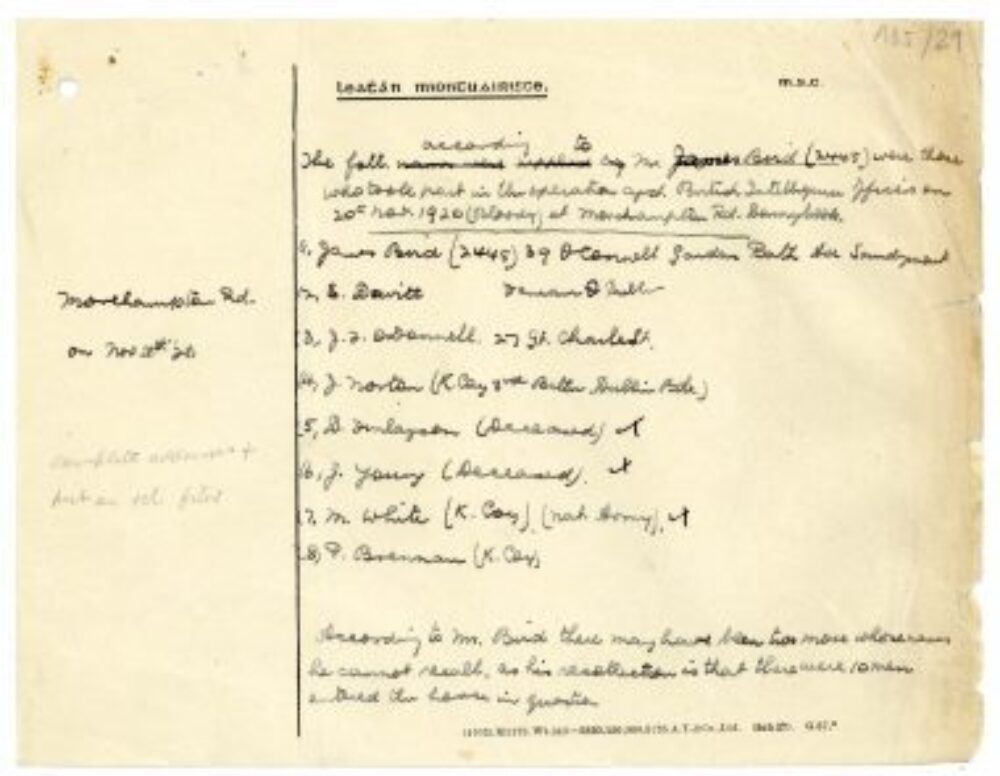 A25/29
Leatán Miontuairisce.
M.S.C.
according to
The foll. names were supplied by Mr James Bird (2445) were those
who took part in the operation agst. British Intelligence Officers on
20th Nov. 1920 (Bloody) at Morehampton Rd. Donnybrook.
1, James Bird (2445) 39 O'Connell Gardens Bath Ave Sandymount
2, E. Davitt
3, J. J. O'Donnell. 27 Gt. Charles St.
4, J. Norton (K Coy 3rd Battn Dublin Bde)
5, D. Finlayson (Deceased)
6, J. Young (Deceased).
7. M. White (K. Coy) (nat. Army),
8) P. Brennan (K. Coy)
Morehampton Rd.
on Nov '20
complete addresses +
According to Mr. Bird there may have been two more whose names
he cannot recall, as his recollection is that there were 10 men
entered the house in question